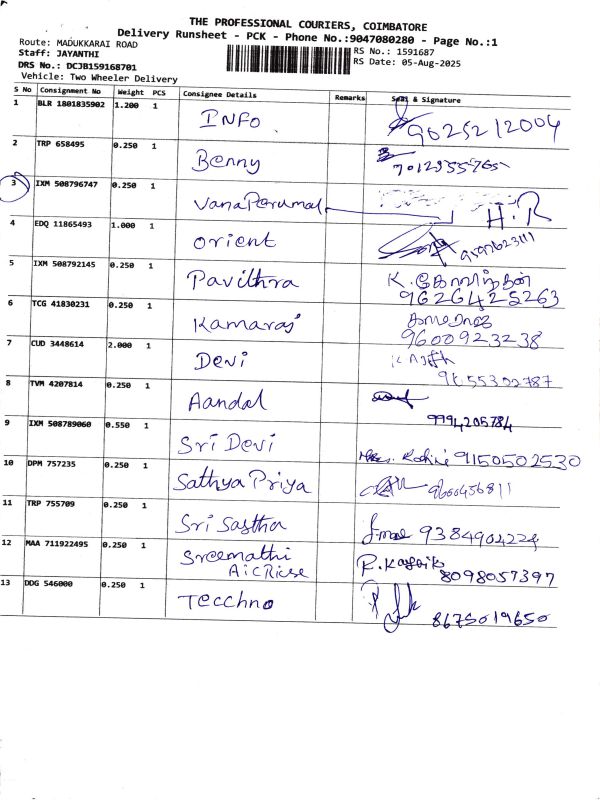 THE PROFESSIONAL COURIERS, COIMBATORE
Delivery Runsheet - PCK - Phone No.:9047080280 - Page No.:1
Route: MADUKKARAI ROAD
Staff: JAYANTHI
RS No.: 1591687
DRS No.: DCJB159168701
RS Date: 05-Aug-2025
Vehicle: Two Wheeler Delivery
S No Consignment No Weight PCS Consignee Details Remarks Seal & Signature
1 BLR 1801835902 1.200 1 INFO 9025212004
2 TRP 658495 0.250 1 Benny
3 IXM 508796747 0.250 1 VanaPerumal H.R
4 EDQ 11865493 1.000 1 Orient
5 IXM 508792145 0.250 1 Pavithra K. கோவிந்தன்
9626425263
6 TCG 41830231 0.250 1 Kamaraj காமராஜ்
9600923238
7 CUD 3448614 2.000 1 Devi
9655302787
8 TVM 4207814 0.250 1 Aandal
9994205784
9 IXM 508789060 0.550 1 Sri Devi 9150502530
10 DPM 757235 0.250 1 Sathya Priya 9600456811
11 TRP 755709 0.250 1 Sri Sastha 9384904224
12 MAA 711922495 0.250 1 Sreemathi R. Kaythik
AicRicse 8098057397
13 DDG 546000 0.250 1 Tecchno
8675019650